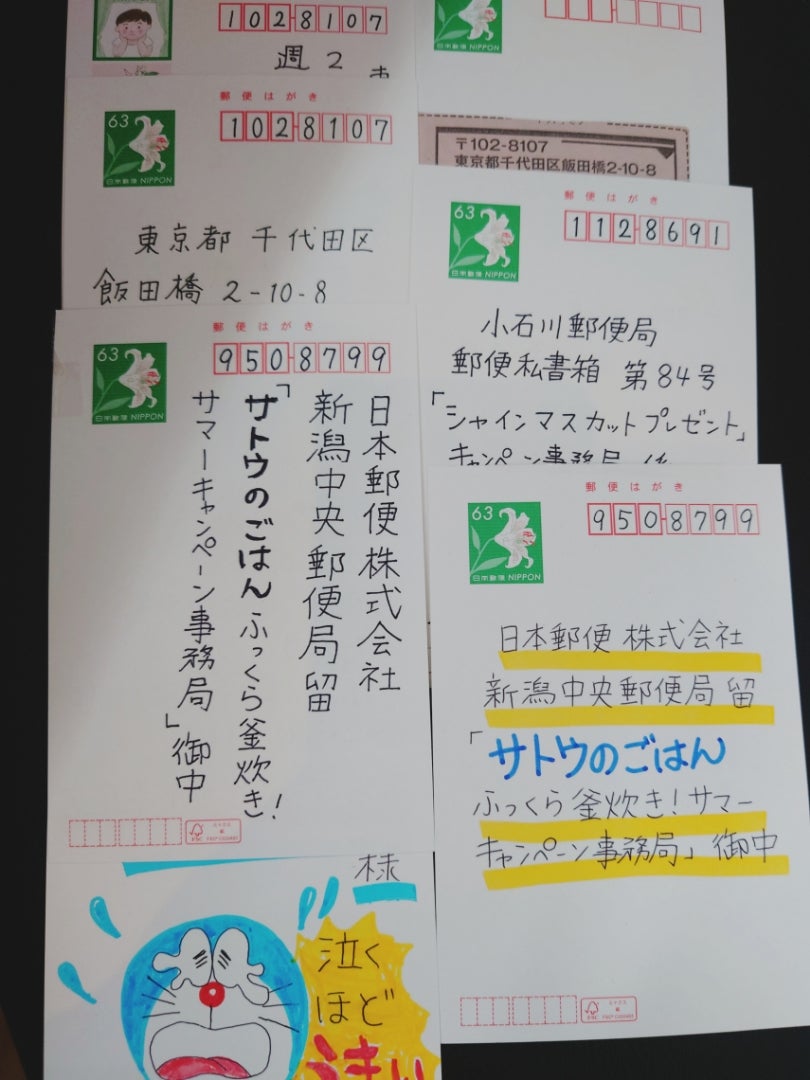 1028107
週2
郵便はがき
〒102-8107
東京都千代田区飯田橋2-10-8
63
日本郵便 NIPPON
郵便はがき
1028107
東京都 千代田区
飯田橋 2-10-8
63
日本郵便 NIPPON
郵便はがき
1128691
小石川郵便局
郵便私書箱 第84号
「シャインマスカットプレゼント」
キャンペーン事務局 係
63
日本郵便 NIPPON
郵便はがき
9508799
日本郵便 株式会社
新潟中央郵便局 留
「サトウのごはん ふっくら釜炊き!
サマーキャンペーン事務局」御中
63
日本郵便 NIPPON
郵便はがき
9508799
日本郵便 株式会社
新潟中央郵便局 留
「サトウのごはん
ふっくら釜炊き!サマー
キャンペーン事務局」御中
様
泣く
ほど
うまい